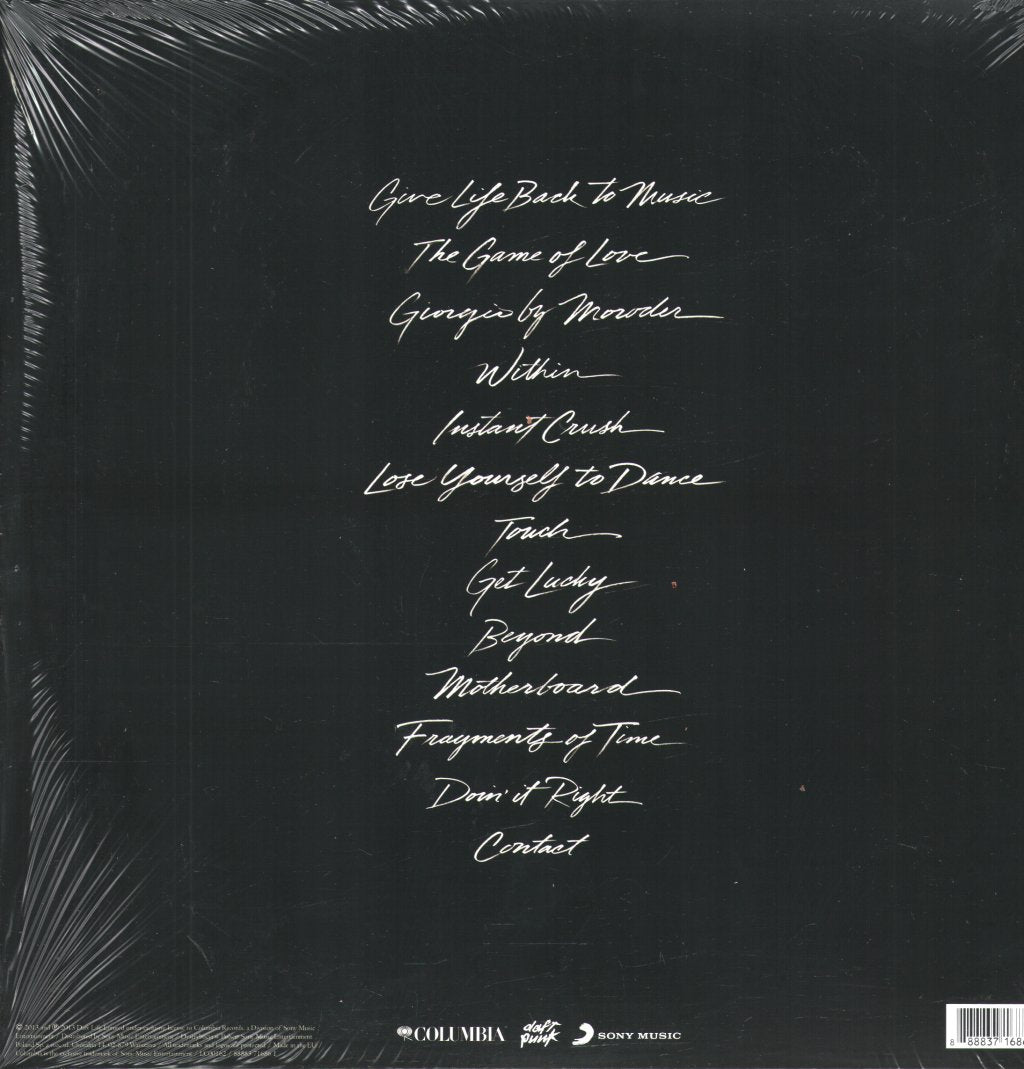 Give Life Back to Music
The Game of Love
Giorgio by Moroder
Within
Instant Crush
Lose Yourself to Dance
Touch
Get Lucky
Beyond
Motherboard
Fragments of Time
Doin' it Right
Contact
© 2013 and ℗ 2013 Daft Life Limited under exclusive license to Columbia Records, a Division of Sony Music
Entertainment / Distributed by Sony Music Entertainment / Sony Music Entertainment
Poland / All trademarks and logos are protected / Made in the EU /
Columbia is the exclusive trademark of Sony Music Entertainment / LC00162 / 88883 71686 1
COLUMBIA
daft punk
SONY MUSIC
8 88837 1686